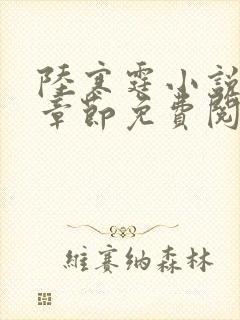 陸寒霆小說
章節免費閱
維賽納森林